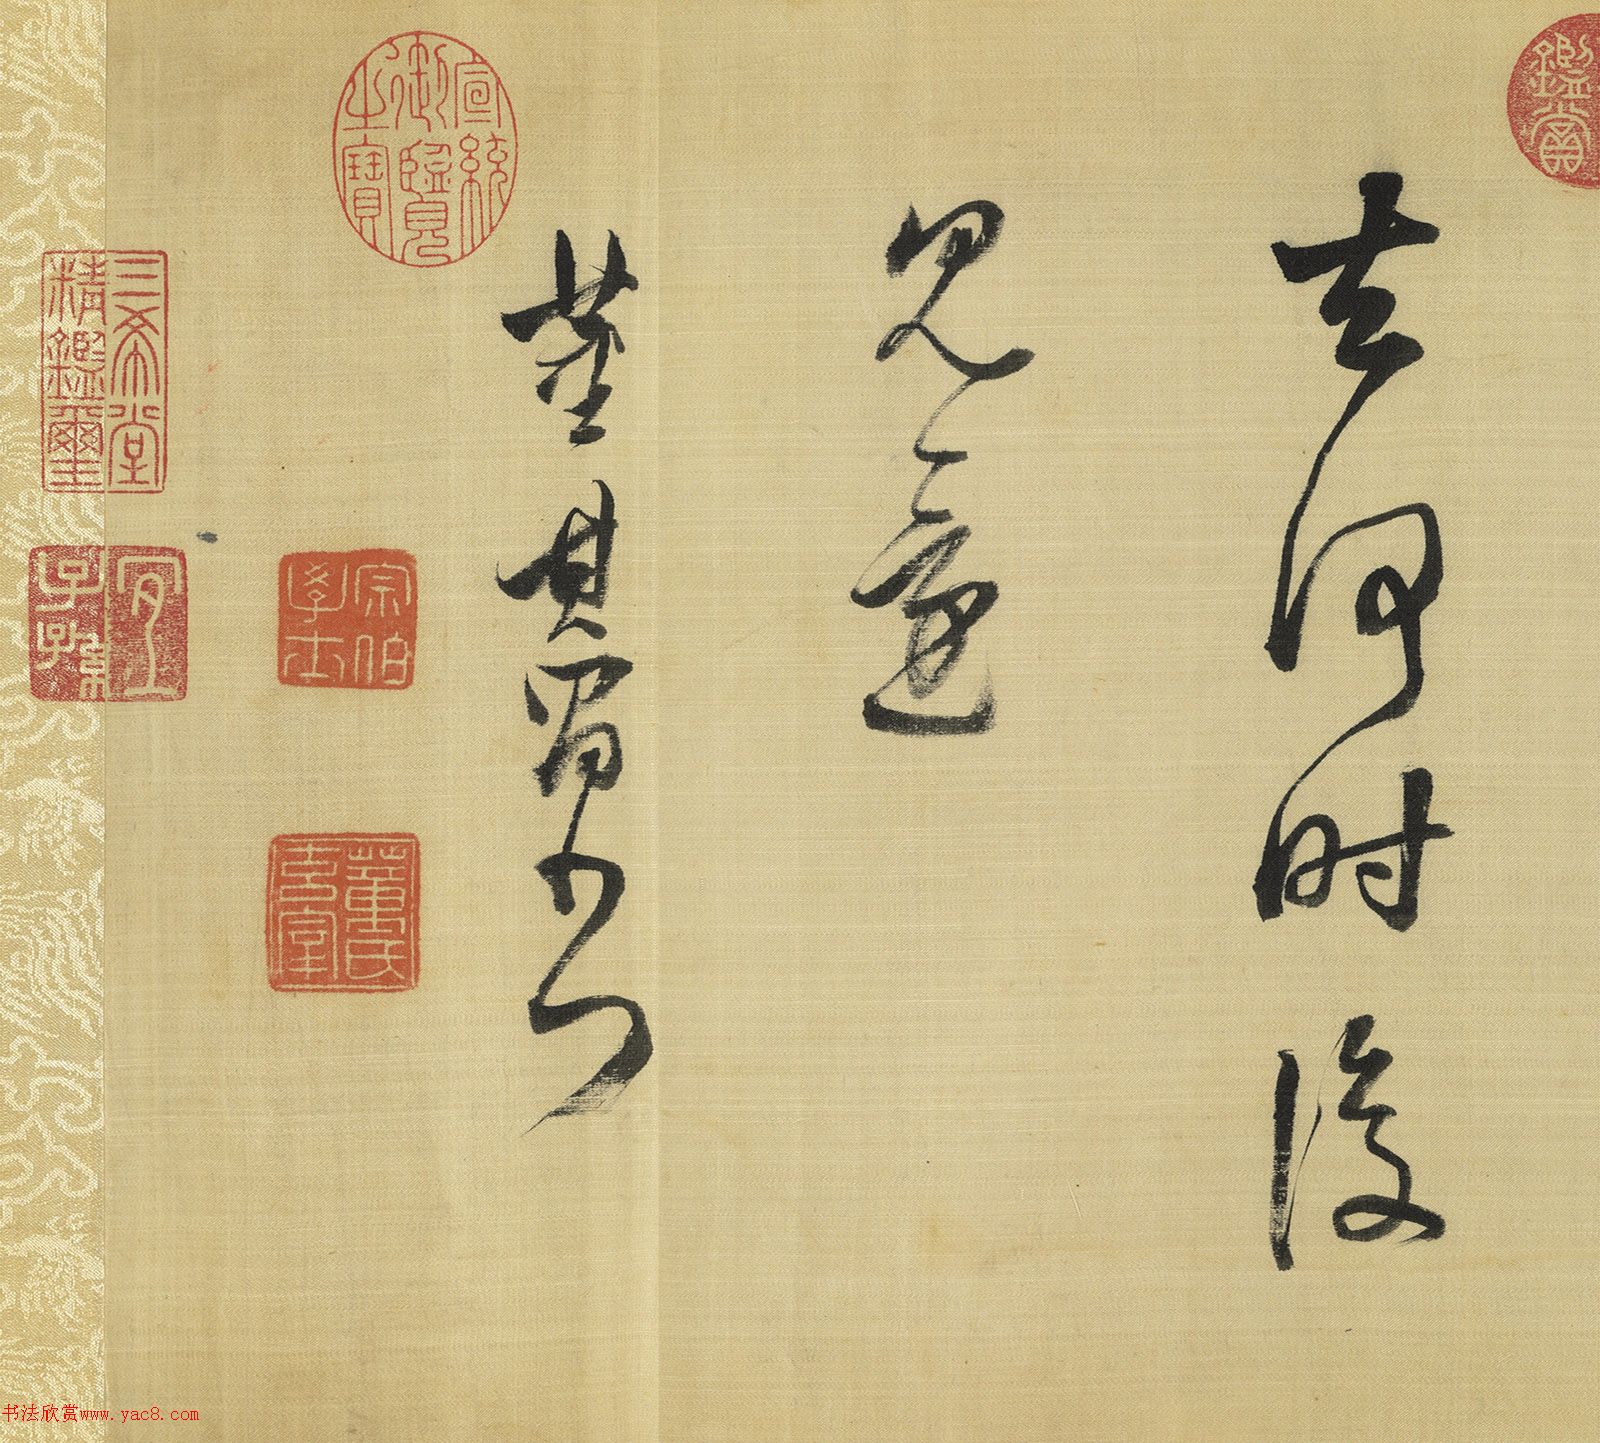 去何时後
見還
董其昌書
鑑賞
宣統御覽之寶
三希堂精鑑璽
宜子孫
宗伯學士
董氏玄宰
书法欣赏www.yac8.com